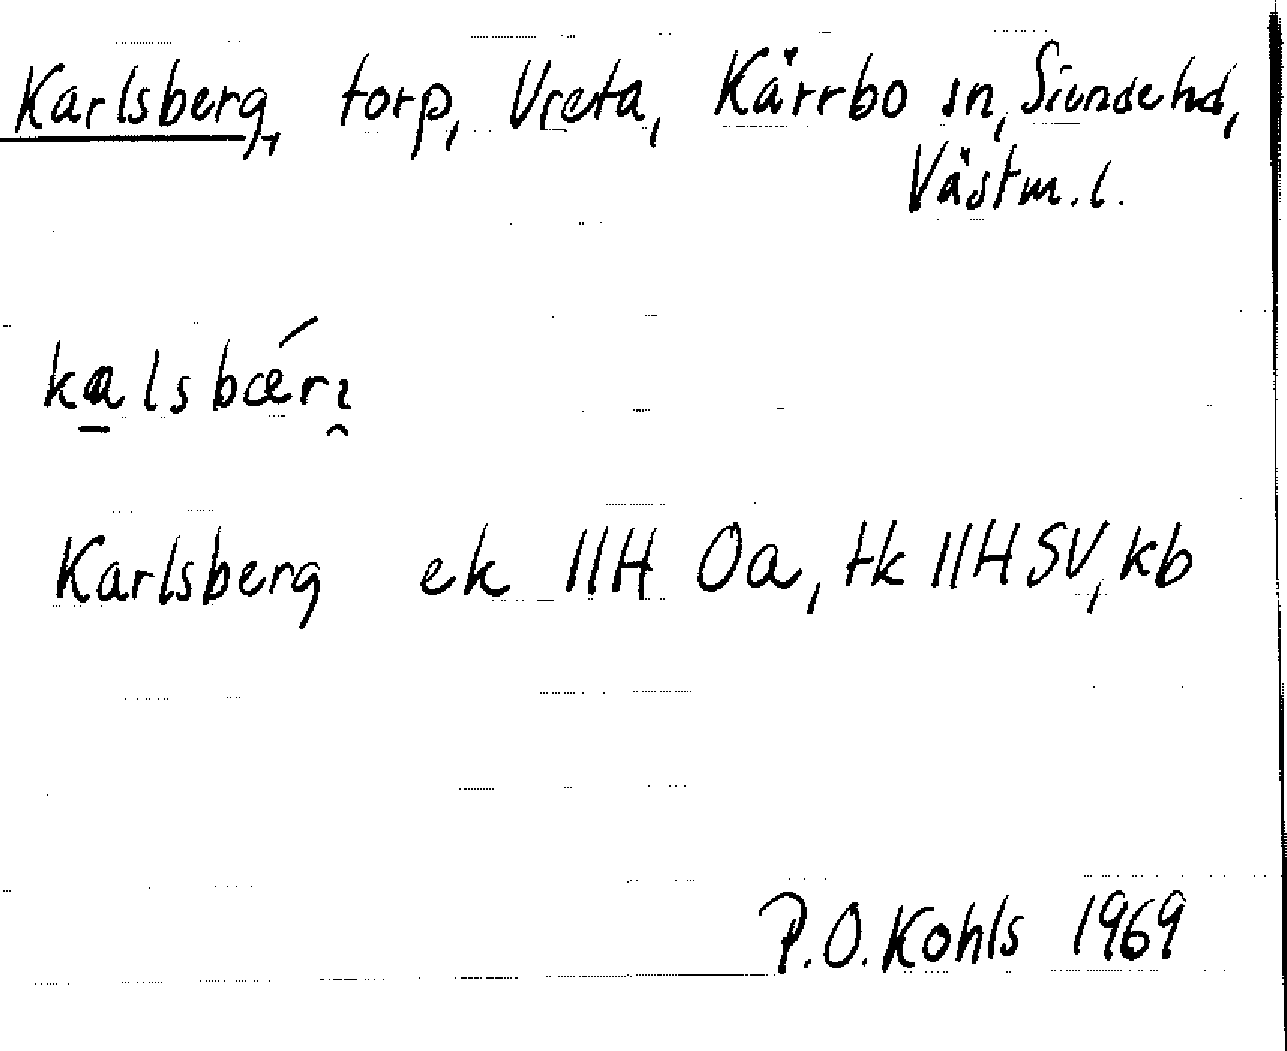 Karlsberg, torp, Vreta, Kärrbo sn, Siende hd,
Västm. l.
kalsbærı
Karlsberg ek 11H 0a, tk 11H SV, kb
P.O. Kohls 1969